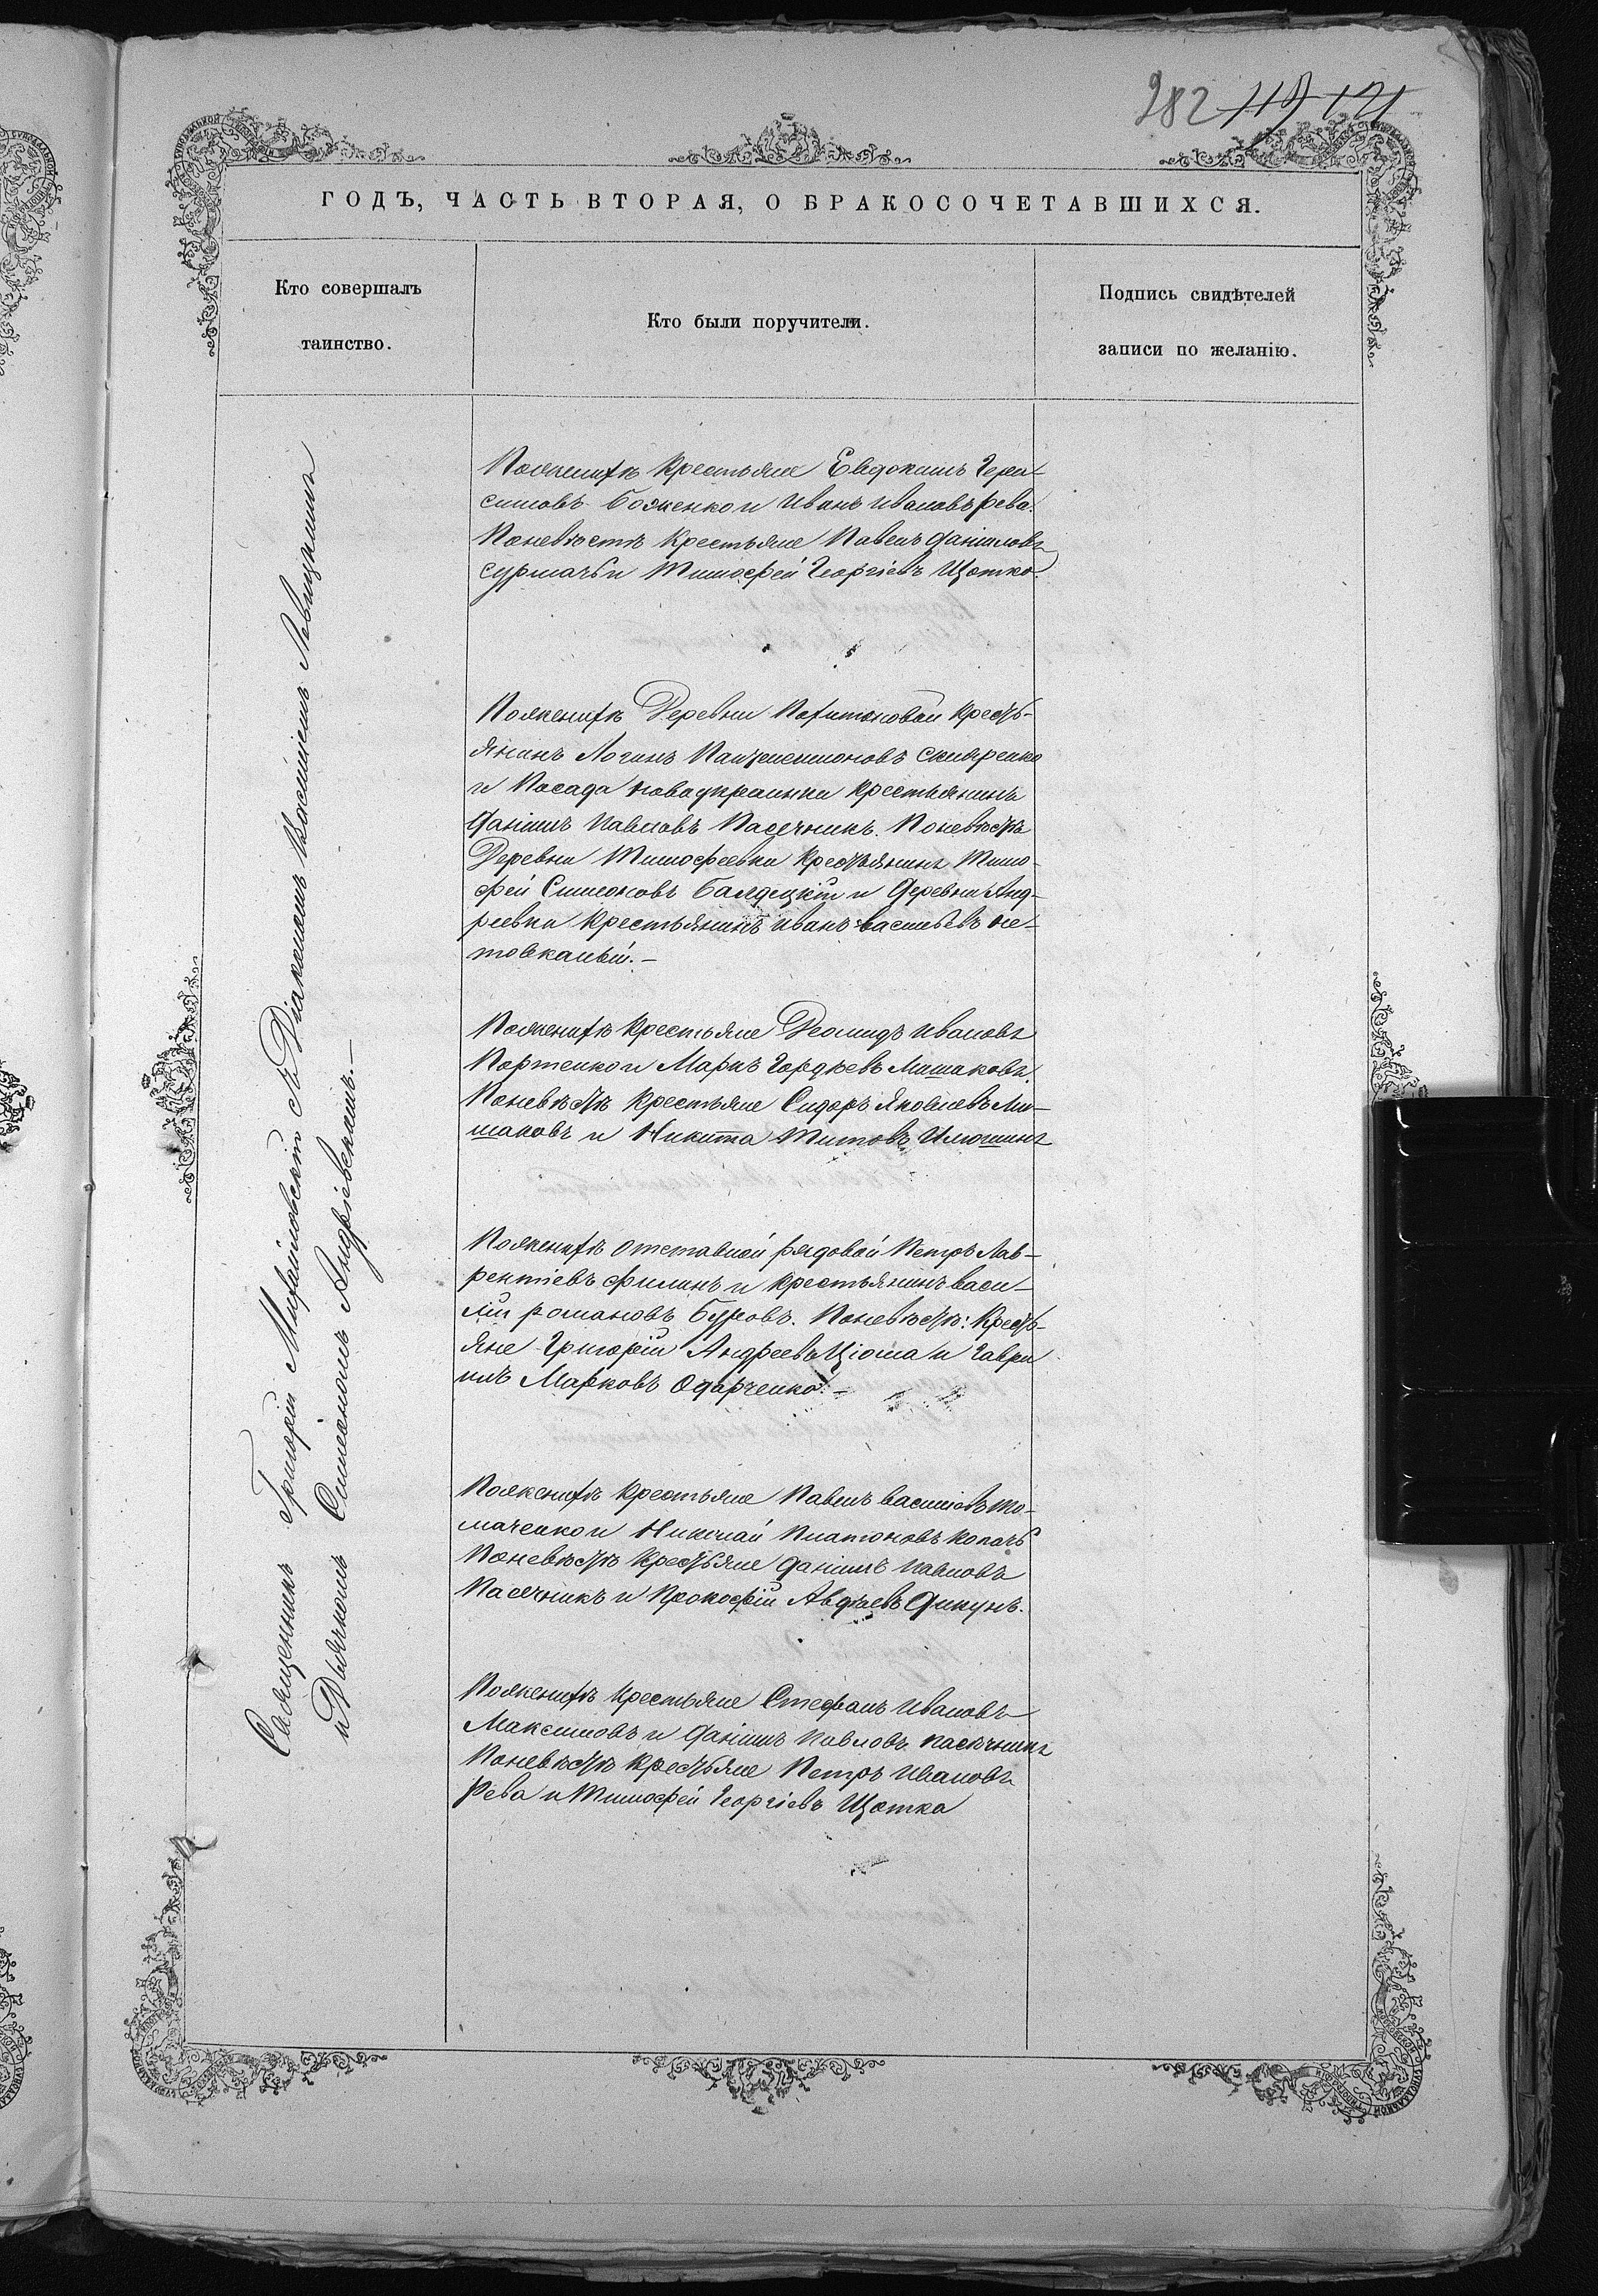 282 119 121
ГОДЪ, ЧАСТЬ ВТОРАЯ, О БРАКОСОЧЕТАВШИХСЯ.
Кто совершалъ
таинство.
Кто были поручители.
Подпись свидѣтелей
записи по желанію.
Священникъ Григорій Михайловскій съ Діакономъ Василіемъ Левицкимъ
и Дьячкомъ Симеономъ Андріевскимъ.—
По женихѣ крестьяне Евдокимъ Гера-
симовъ Боженко и Иванъ Ивановъ Рева.
По невѣстѣ крестьяне Павелъ Даніиловъ
Сурмачъ и Тимофей Георгіевъ Щотко.
По женихѣ Деревни крестъ-
янинъ Логинъ Скляренко
и Посада Новоукраинки крестьянинъ
Даніилъ Павловъ Пасечникъ. По невѣстѣ
Деревни Тимофеевки крестьянинъ Тимо-
фей Симоновъ и Деревни Анд-
реевки крестьянинъ Иванъ Васильевъ Не-
товканый.—
По женихѣ крестьяне Деомидъ Ивановъ
Портенко и Маркъ Гордѣевъ Лишаковъ.
По невѣстѣ крестьяне Сидоръ Яковлевъ Ли-
шаковъ и Никита Титовъ Илюшинъ
По женихѣ отставной рядовой Петръ Лав-
рентіевъ Филинъ и крестьянинъ Васи-
лій Романовъ Буровъ. По невѣстѣ: Крестъ-
яне Григорій Андреевъ Цюма и Гаври
илъ Марковъ Одарченко.—
По женихѣ крестьяне Павелъ Василіевъ То-
маченко и Николай Платоновъ Копачъ
По невѣстѣ крестьяне Даніилъ Павловъ
Пасечникъ и Прокофій Авдѣевъ Дикунъ.
По женихѣ крестьяне Стефанъ Ивановъ
Максимовъ и Даніилъ Павловъ Пасѣчникъ
По невѣстѣ крестьяне Петръ Ивановъ
Рева и Тимофей Георгіевъ Щотка